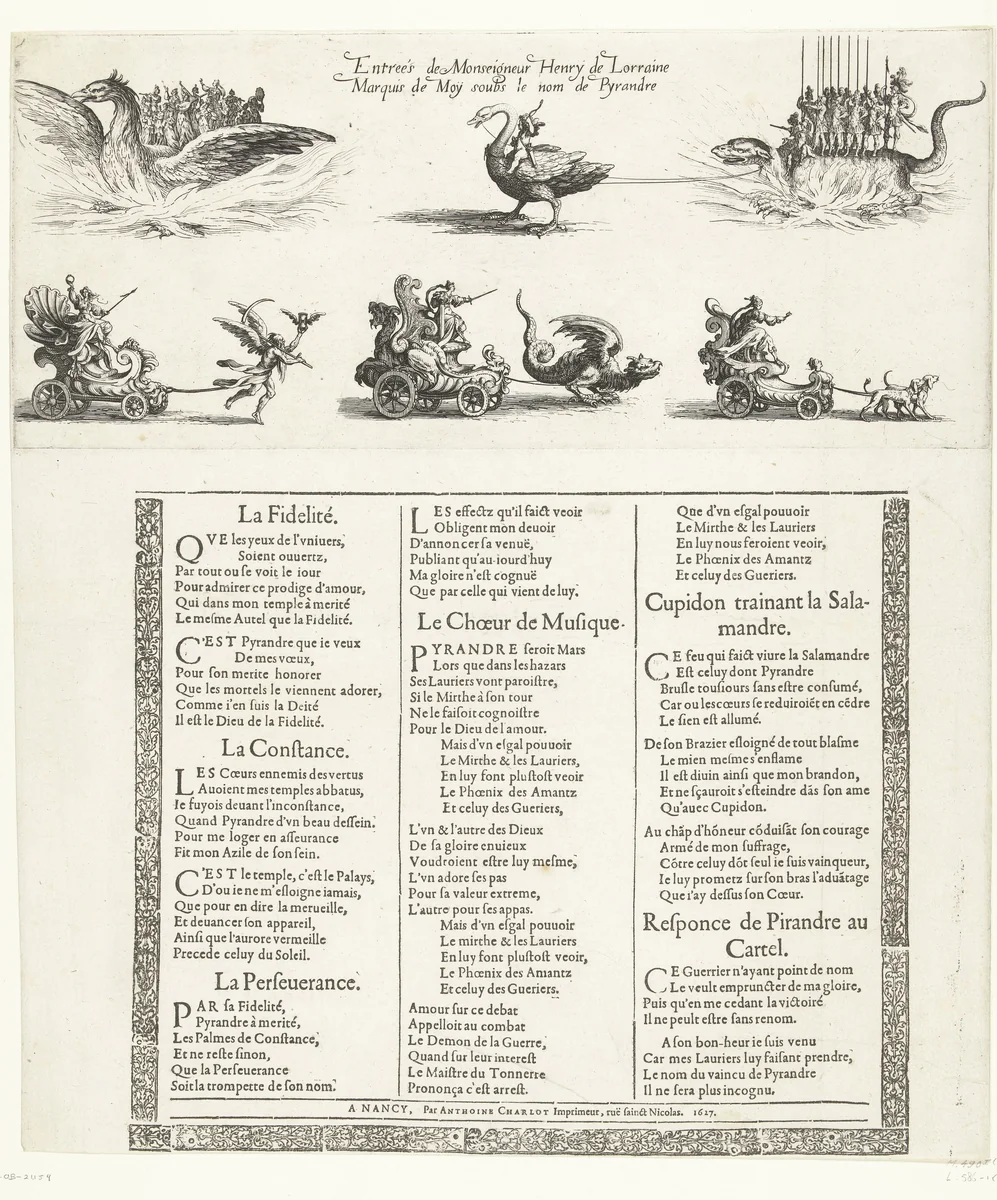 Entreés de Monseigneur Henry de Lorraine
Marquis de Moÿ soubs le nom de Pyrandre
La Fidelité.
QVE les yeux de l'vniuers,
Soient ouuertz,
Par tout ou se voit le iour
Pour admirer ce prodige d'amour,
Qui dans mon temple à merité
Le mesme Autel que la Fidelité.
C'EST Pyrandre que ie veux
De mes vœux,
Pour son merite honorer
Que les mortels le viennent adorer,
Comme i'en suis la Deité
Il est le Dieu de la Fidelité.
La Constance.
LES Cœurs ennemis des vertus
Auoient mes temples abbatus,
Ie fuyois deuant l'inconstance,
Quand Pyrandre d'vn beau dessein,
Pour me loger en asseurance
Fit mon Azile de son sein.
C'EST le temple, c'est le Palays,
D'ou ie ne m'esloigne iamais,
Que pour en dire la merueille,
Et deuancer son appareil,
Ainsi que l'aurore vermeille
Precede celuy du Soleil.
La Perseuerance.
PAR sa Fidelité,
Pyrandre à merité,
Les Palmes de Constance,
Et ne reste sinon,
Que la Perseuerance
Soit la trompette de son nom.
LES effectz qu'il faict veoir
Obligent mon deuoir
D'annoncer sa venuë,
Publiant qu'au-iourd'huy
Ma gloire n'est cognuë
Que par celle qui vient de luy.
Le Chœur de Musique.
PYRANDRE seroit Mars
Lors que dans les hazars
Ses Lauriers vont paroistre,
Si le Mirthe à son tour
Ne le faisoit cognoistre
Pour le Dieu de l'amour.
Mais d'vn esgal pouuoir
Le Mirthe & les Lauriers,
En luy font plustost veoir
Le Phœnix des Amantz
Et celuy des Gueriers,
L'vn & l'autre des Dieux
De sa gloire enuieux
Voudroient estre luy mesme,
L'vn adore ses pas
Pour sa valeur extreme,
L'autre pour ses appas.
Mais d'vn esgal pouuoir
Le mirthe & les Lauriers
En luy font plustost veoir,
Le Phœnix des Amantz
Et celuy des Gueriers.
Amour sur ce debat
Appelloit au combat
Le Demon de la Guerre,
Quand sur leur interest
Le Maistre du Tonnerre
Prononça c'est arrest.
Que d'vn esgal pouuoir
Le Mirthe & les Lauriers
En luy nous feroient veoir,
Le Phœnix des Amantz
Et celuy des Gueriers.
Cupidon trainant la Sala-
mandre.
CE feu qui faict viure la Salamandre
Est celuy dont Pyrandre
Brusle tousiours sans estre consumé,
Car ou les cœurs se reduiroiēt en cēdre
Le sien est allumé.
De son Brazier esloigné de tout blasme
Le mien mesme s'enflame
Il est diuin ainsi que mon brandon,
Et ne sçauroit s'esteindre dās son ame
Qu'auec Cupidon.
Au chāp d'hōneur cōduisāt son courage
Armé de mon suffrage,
Cōtre celuy dōt seul ie suis vainqueur,
Ie luy prometz sur son bras l'aduātage
Que i'ay dessus son Cœur.
Responce de Pirandre au
Cartel.
CE Guerrier n'ayant point de nom
Le veult emprunćter de ma gloire,
Puis qu'en me cedant la victoire
Il ne peult estre sans renom.
A son bon-heur ie suis venu
Car mes Lauriers luy faisant prendre,
Le nom du vaincu de Pyrandre
Il ne sera plus incognu.
A NANCY, Par ANTHOINE CHARLOT Imprimeur, ruë sainct Nicolas. 1627.
-OB-2059